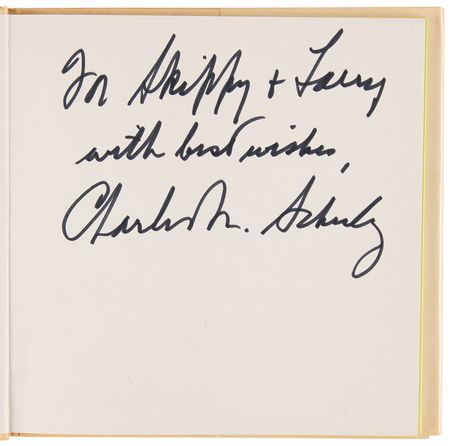 For Skippy + Larry
with best wishes,
Charles M. Schulz